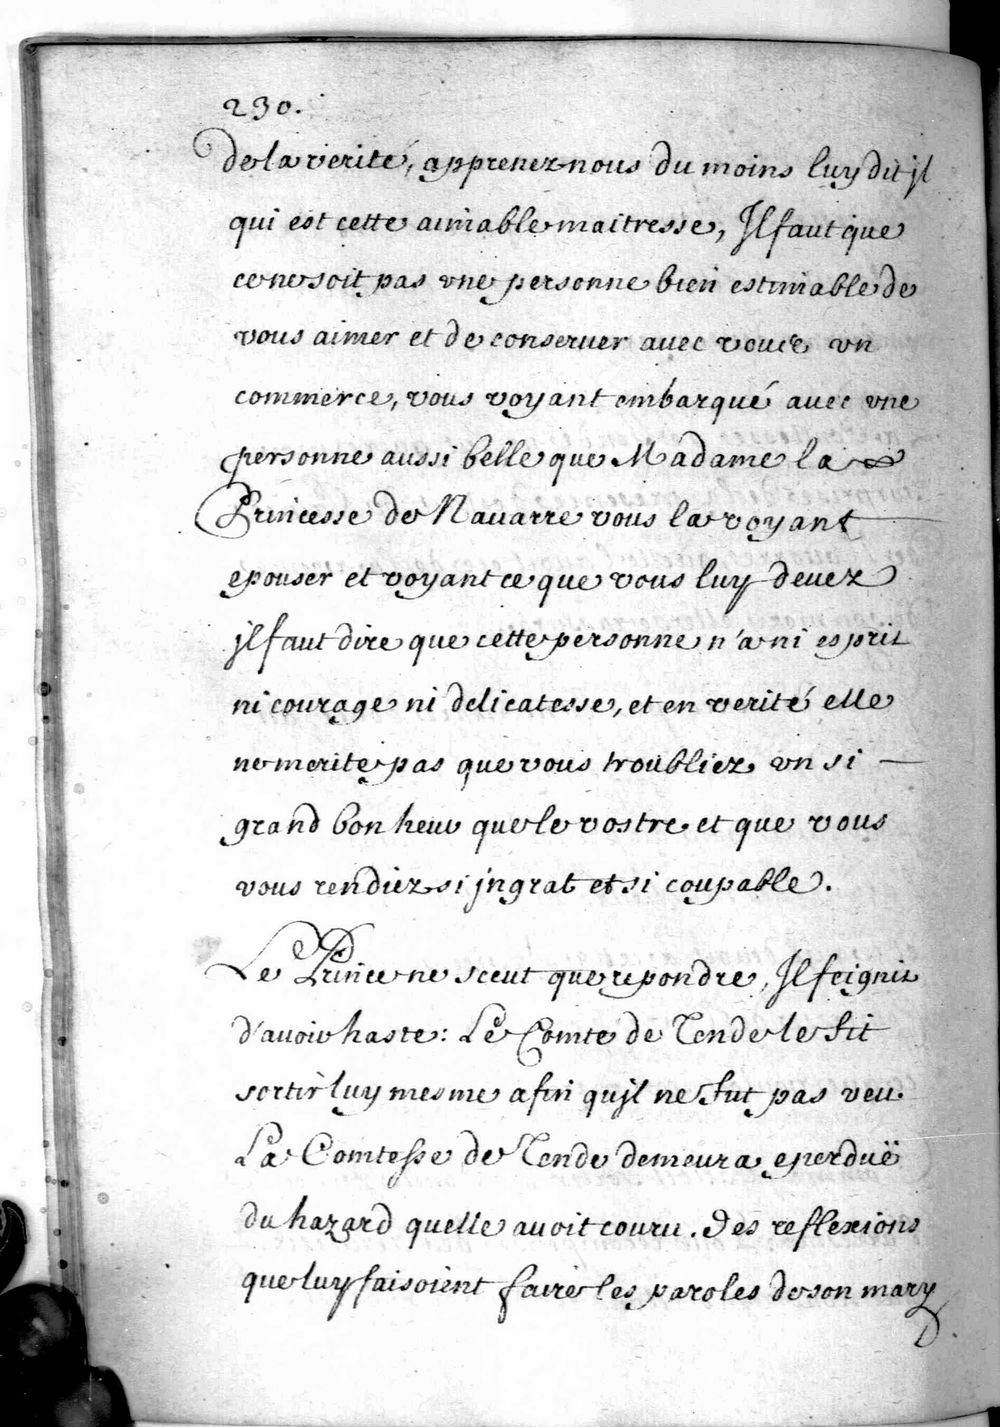 230.
de la verité, apprenez nous du moins luy dit jl
qui est cette aimable maitresse, Jl faut que
ce ne soit pas vne personne bien estimable de
vous aimer et de conseruer avec vous vn
commerce, vous voyant embarqué avec vne
personne aussi belle que Madame la
Princesse de Nauarre vous la voyant
epouser et voyant ce que vous luy devez
jl faut dire que cette personne n'a ni esprit
ni courage ni delicatesse, et en verité elle
ne merite pas que vous troubliez vn si
grand bonheur que le vostre et que vous
vous rendiez si jngrat et si coupable.
Le Prince ne sceut que repondre, Jl feignit
d'avoir haste: Le Comte de Tende le fit
sortir luy mesme afin qu'jl ne fut pas veu.
La Comtesse de Tende demeura eperduë
du hazard quelle avoit couru. des reflexions
que luy faisoient faire les paroles de son mary